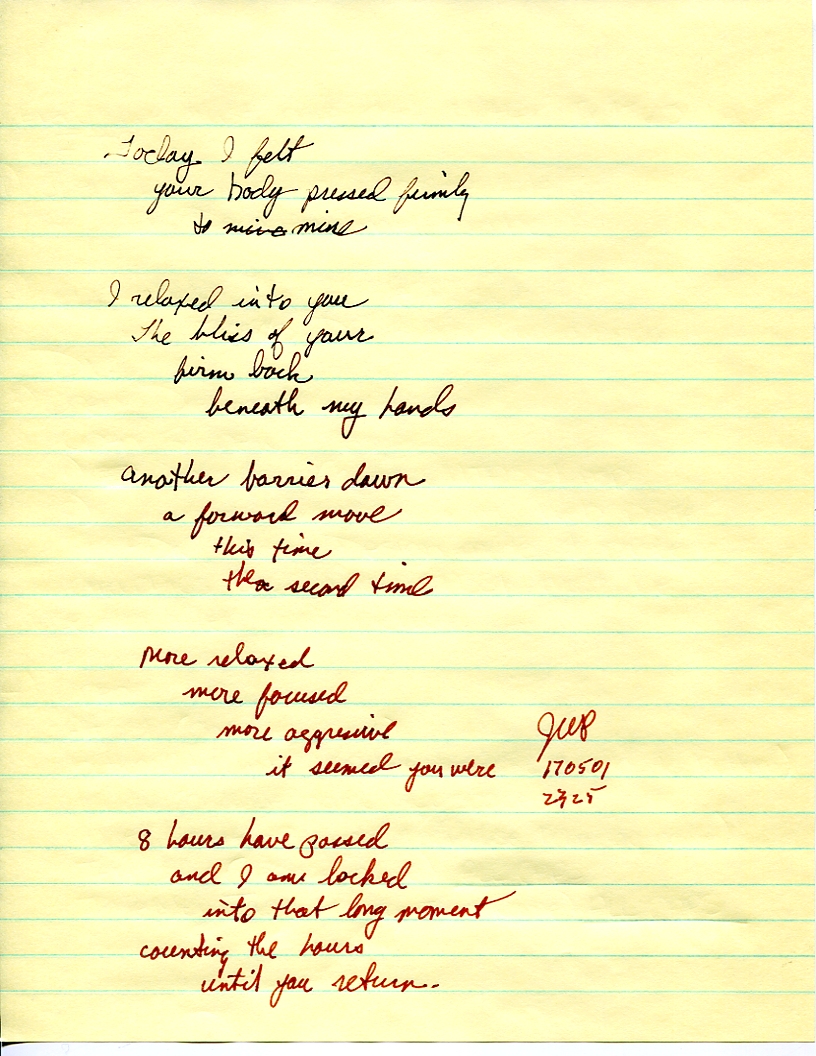 Today I felt
your body pressed firmly
to mine mine
I relaxed into you
The bliss of your
firm back
beneath my hands
another barrier down
a forward move
this time
the second time
More relaxed
more focused
more aggresive
it seemed you were
JWP
170501
2325
8 hours have passed
and I am locked
into that long moment
counting the hours
until you return.